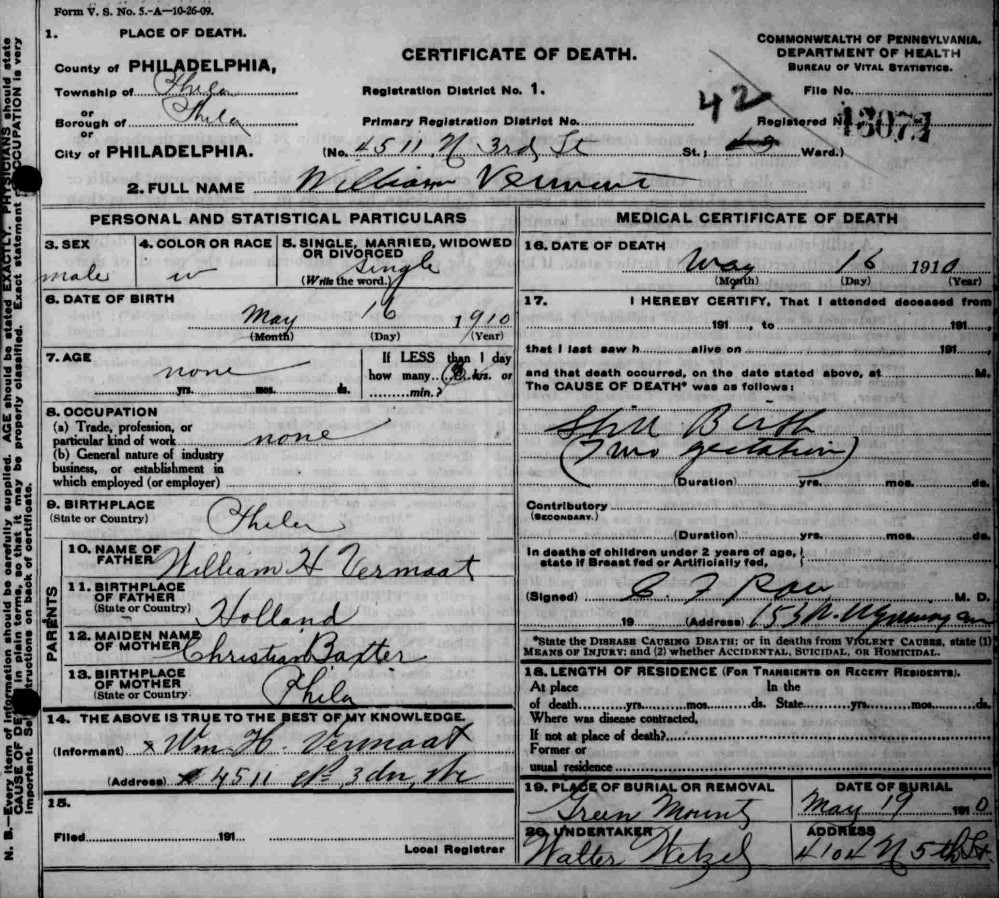 Form V. S. No. 5.-A—10-26-09.
1. PLACE OF DEATH.
County of PHILADELPHIA,
Township of Phila
or
Borough of Phila
or
City of PHILADELPHIA.
CERTIFICATE OF DEATH.
Registration District No. 1.
Primary Registration District No.
(No. 4511 N 3rd St St.; 42 Ward.)
COMMONWEALTH OF PENNSYLVANIA.
DEPARTMENT OF HEALTH
BUREAU OF VITAL STATISTICS.
File No.
Registered No.
2. FULL NAME William
PERSONAL AND STATISTICAL PARTICULARS
3. SEX
male
4. COLOR OR RACE
w
5. SINGLE, MARRIED, WIDOWED
OR DIVORCED
single
(Write the word.)
6. DATE OF BIRTH
May 16 1910
(Month) (Day) (Year)
7. AGE
none
yrs. mos. ds.
If LESS than 1 day
how many hrs. or
min.?
8. OCCUPATION
(a) Trade, profession, or
particular kind of work none
(b) General nature of industry
business, or establishment in
which employed (or employer)
9. BIRTHPLACE
(State or Country) Phila
PARENTS
10. NAME OF
FATHER William H Vermaat
11. BIRTHPLACE
OF FATHER
(State or Country) Holland
12. MAIDEN NAME
OF MOTHER Christian Baxter
13. BIRTHPLACE
OF MOTHER
(State or Country) Phila
14. THE ABOVE IS TRUE TO THE BEST OF MY KNOWLEDGE.
(Informant) x Wm H. Vermaat
(Address) x 4511
15.
Filed 191
Local Registrar
MEDICAL CERTIFICATE OF DEATH
16. DATE OF DEATH
May 16 1910
(Month) (Day) (Year)
17. I HEREBY CERTIFY, That I attended deceased from
191, to 191,
that I last saw h alive on 191,
and that death occurred, on the date stated above, at M.
The CAUSE OF DEATH* was as follows:
Still Birth
(7 mo gestation)
(Duration) yrs. mos. ds.
Contributory
(SECONDARY.)
(Duration) yrs. mos. ds.
In deaths of children under 2 years of age,
state if Breast fed or Artificially fed,
(Signed) C. F M. D.
19 (Address) 153 W. Wyoming av
*State the DISEASE CAUSING DEATH; or in deaths from VIOLENT CAUSES, state (1)
MEANS OF INJURY; and (2) whether ACCIDENTAL, SUICIDAL, OR HOMICIDAL.
18. LENGTH OF RESIDENCE (FOR TRANSIENTS OR RECENT RESIDENTS).
At place In the
of death yrs. mos. ds. State yrs. mos. ds.
Where was disease contracted,
If not at place of death?
Former or
usual residence
19. PLACE OF BURIAL OR REMOVAL
Green Mount
DATE OF BURIAL
May 19 1910
20. UNDERTAKER
Walter Wetzel
ADDRESS
4104 N 5th St.
N. B.—Every item of information should be carefully supplied. AGE should be stated EXACTLY. PHYSICIANS should state
CAUSE OF DE in plain terms, so that it may be properly classified. Exact statement OCCUPATION is very
important. Se tructions on back of certificate.